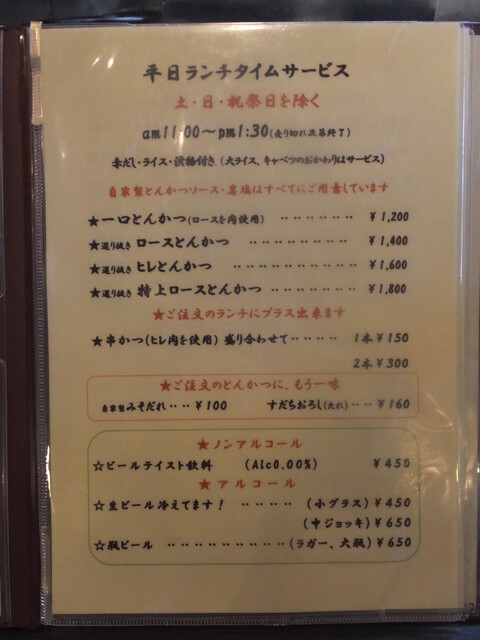 平日ランチタイムサービス
土・日・祝祭日を除く
am11:00～pm1:30(売り切れ次第終了)
赤だし・ライス・漬物付き、(大ライス、キャベツのおかわりはサービス)
自家製とんかつソース・岩塩はすべてにご用意しています
★一口とんかつ(ロースを肉使用) ‥‥‥‥‥‥ ￥1,200
★選り抜き ロースとんかつ ‥‥‥‥‥‥‥‥ ￥1,400
★選り抜き ヒレとんかつ ‥‥‥‥‥‥‥‥‥ ￥1,600
★選り抜き 特上ロースとんかつ ‥‥‥‥‥‥ ￥1,800
★ご注文のランチにプラス出来ます
★串かつ(ヒレ肉を使用) 盛り合わせて‥‥‥‥ 1本￥150
2本￥300
★ご注文のとんかつに、もう一味
自家製みそだれ‥‥￥100 すだちおろし(たれ)‥‥￥160
★ノンアルコール
☆ビールテイスト飲料 (Alc0.00%) ￥450
★アルコール
☆生ビール冷えてます！ ‥‥‥‥ (小グラス)￥450
(中ジョッキ)￥650
☆瓶ビール ‥‥‥‥‥‥‥‥‥(ラガー、大瓶)￥650